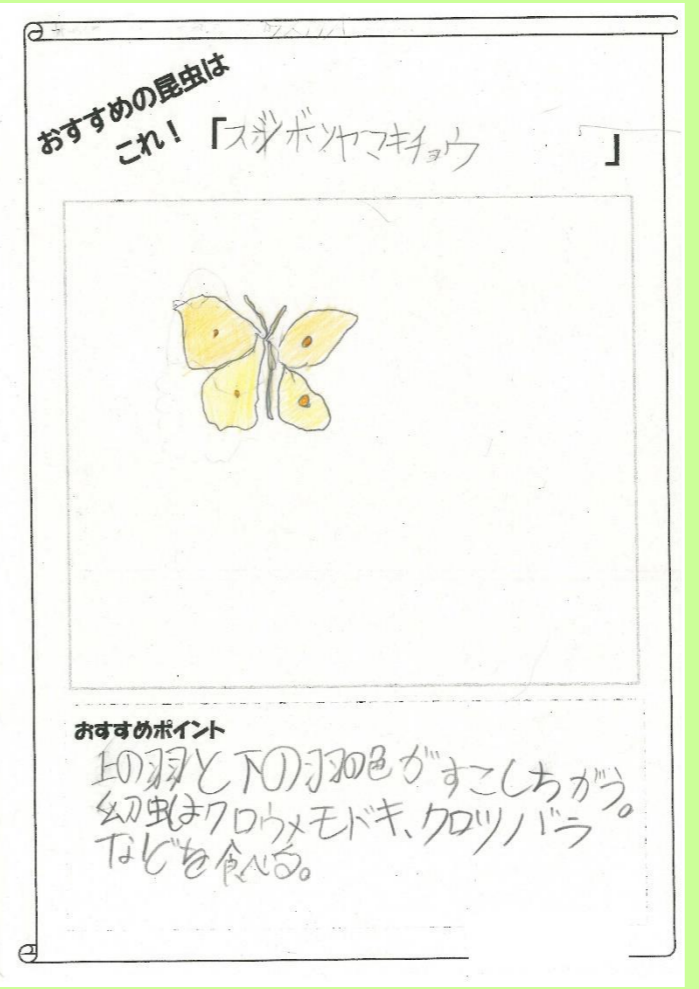 おすすめの昆虫は
これ！「スジボソヤマキチョウ」
おすすめポイント
上の羽と下の羽の色がすこしちがう。
幼虫はクロウメモドキ、クロツバラ
などを食べる。